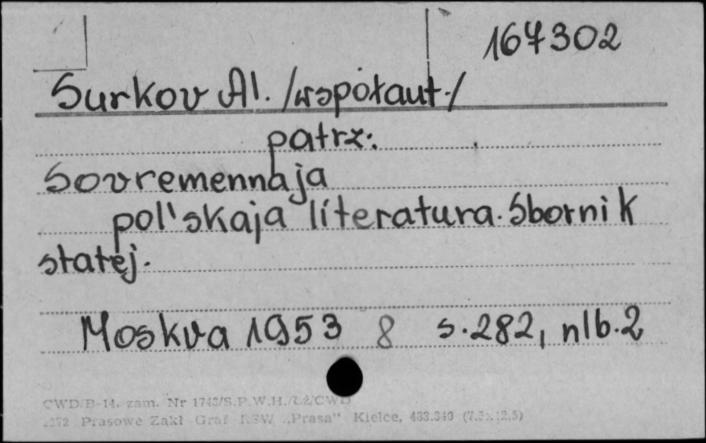 167302
Surkov Al. /współaut./
patrz:
Sovremennaja
pol'skaja literatura. Sbornik
statej.
Moskva 1953 8 s. 282, nlb. 2
CWD/B-14. zam. Nr
Prasowe Zakł Graf RSW „Prasa” Kielce,